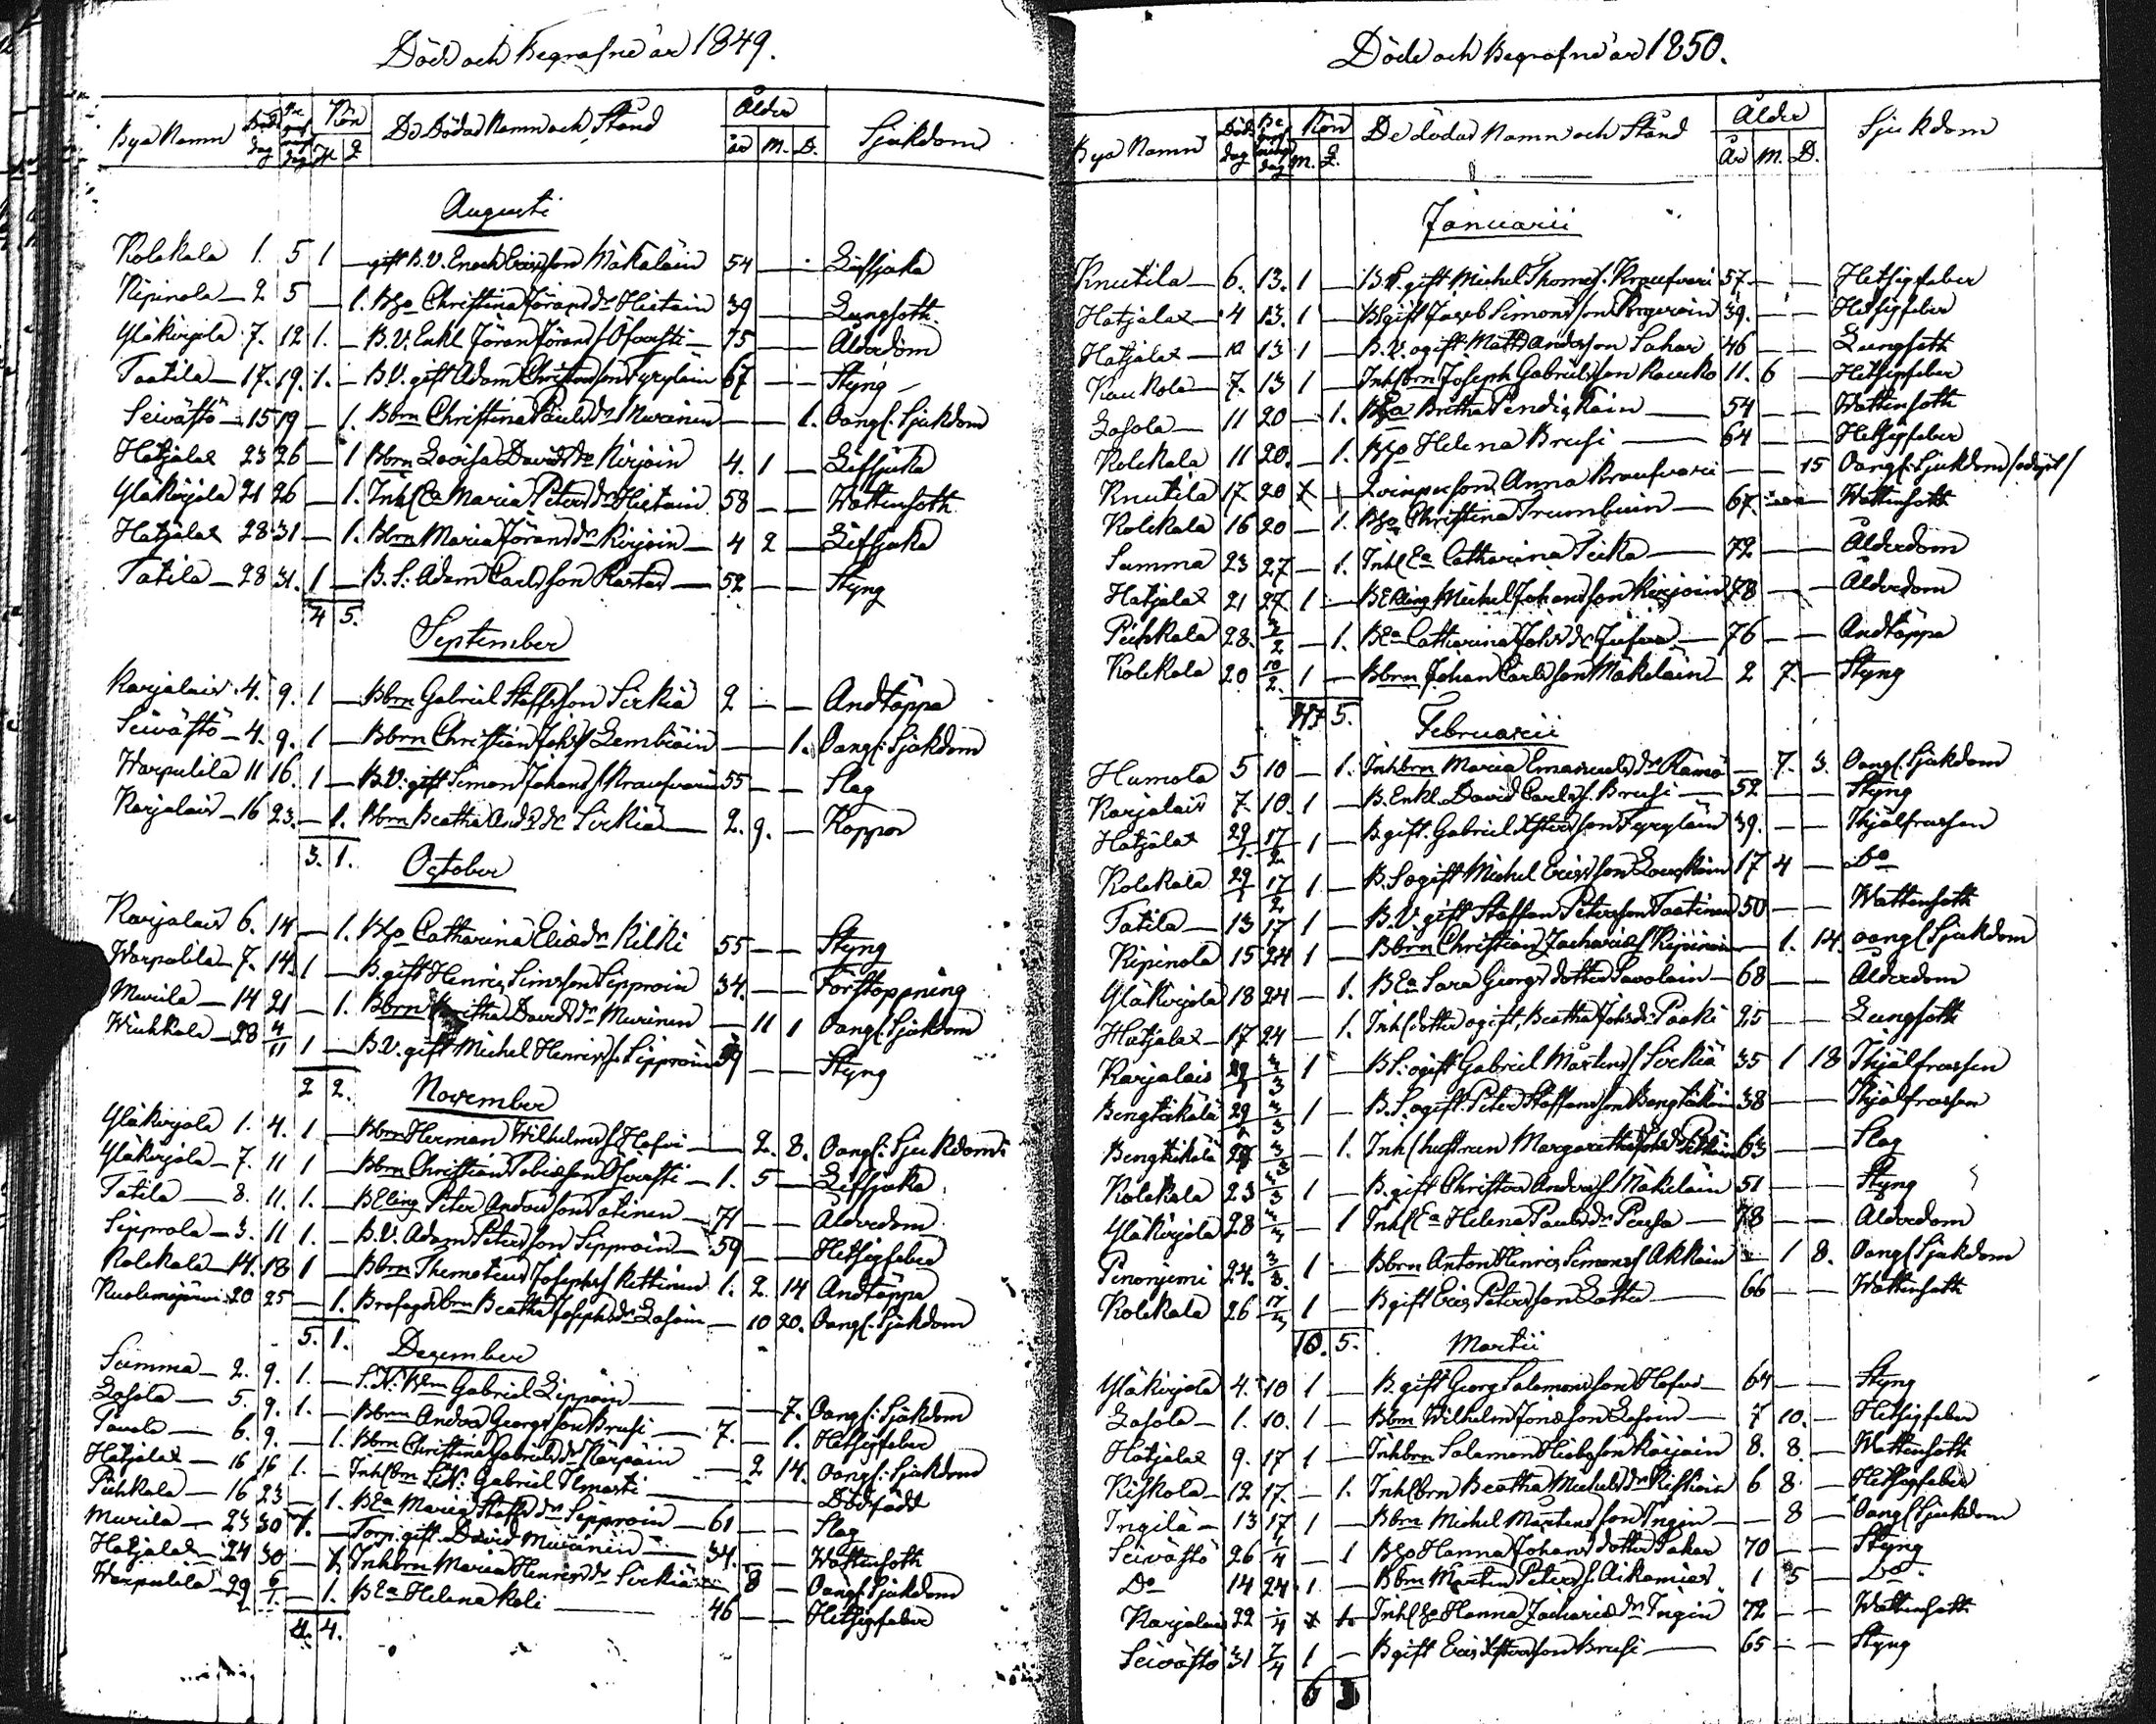 Döde och Begrafne år 1849.
Bya Namn Död dag Begrafnings dag Kön M Q De Dödas Namn och Stånd Ålder år M. D. Sjukdom
Augusti
Kolckala 1. 5 1 — gift B.V. Enoch Ericsson Mäkeläin 54 — — Lifsjuka
Kipinola — 2 5 — 1. Bho Christina Jöransdr Hietain 39 — — Lungsoth
Yläkirjola 7. 12 1. — B.V. Enkl Jöran Jörans/ 75 — — Ålderdom
Taatila — 17. 19. 1. — B.V. gift Adam Christersson Tyryläin 67 — — Styng
Seivästö — 15 19 — 1. Bbrn Christina Paulsdr Muurinen — — 1. Oangf. Sjukdom
Hatjalax 23 26 — 1 Bbrn Lovisa Davidsdr Kirjoin 4. 1 — Lifsjuka
Yläkirjola 21 26 — 1. Inh Ea Maria Petersdr Hietain 58 — — Wattensoth
Hatjalax 28 31 — 1. Bbrn Maria Jöransdr Kirjoin — 4 2 — Lifsjuka
Tatila — 28 31. 1 — B.S. Adam Carlsson Rastas — 52 — — Styng
4 5.
September
Karjalais 4. 9. 1 — Bbrn Gabriel Staffsson Sirkiä 2 — — Andtäppa
Seivästö — 4. 9. 1 — Bbrn Christian Johs/ Lembiäin — — 1. Oangf. Sjukdom
Warpulila 11 16. 1 — B.V. gift Simon Johans/ Kraufvari 55 — — Slag
Karjalais — 16 23. — 1. Bbrn Beatha Andsdr Sirkiä — 2. 9. — Koppor
3. 1.
October
Karjalais 6. 14 — 1. Bho Catharina Eliædr Kilki 55 — — Styng
Warpulila — 7. 14. 1 — B. gift Henric Simsson Sipproin 34. — — Förstoppning
Murila — 14 21 — 1. Bbrn Davidsdr Murinen — 11 1 Oangf. Sjukdom
Wiukkala — 28 4/11 1 — B.V. gift Michel Henrics/ Sipproin — — Styng
2 2.
November
Yläkirjola 1. 4. 1 — Bbrn Herman Wilhelms/ Hofvi — 2. 8. Oangf. Sjukdom
Yläkirjola — 7. 11 1 — Bbrn Christian Tobiæson — 1. 5 — Lifsjuka
Tatila — 8. 11. 1. — BEling Peter Andersson Tatinen — 71 — — Ålderdom
Sipprola — 3. 11 1. — B.V. Adam Petersson Sipproin — 59 — — Hetsigfeber
Kolckala — 14. 18 1 — Bbrn Themoteus Josephs/ Kettinen 1. 2. 14 Andtäppa
Kuolemajärvi 20 25 — 1. Brofogdsbrn Beatha Josephsdr Lasoin — 10 20. Oangf. Sjukdom
5. 1.
December
Summa — 2. 9. 1. — S.N. Wm Gabriel Lippoin — — 7. Oangf. Sjukdom
Lasola — 5. 9. 1. — Bbrn Anders Georgsson Brusi — 7. — 1. Hetsigfeber
Pavola — 6. 9. — 1. Bbrn Christina Gabrielsdr Kärpäin — 2 14. Oangf. Sjukdom
Hatjalax — 16 16 1. — Inh brn Gabriel Ilmasti — — — Dödfödd
Pihkala — 16 23 — 1. BEa Maria Staffsdr Sipproin — 61 — — Slag
Murila — 23 30 1. — Torp. gift David Muurinen — 34. — — Wattensoth
Hatjalax — 24 30 — 1. Inhbrn Maria Henricsdr Sirkiä — 8 — Oangf. Sjukdom
Warpulila — 29 6/1 — 1. BEa Helena Koli — 46 — — Hetsigfeber
4. 4.
Döde och Begrafne år 1850.
Bya Namn Död dag Begrafnings dag Kön M. Q. De dödas Namn och Stånd Ålder År M. D. Sjukdom
Januarii
Knutila — 6. 13. 1 — B.V. gift Michel Thomæs. Kraufvari 57. — — Hetsigfeber
Hatjalax — 4 13. 1 — B gift Jacob Simonsson 39. — — Hetsigfeber
Hatjalax — 13 1 — B.V. ogift Matts Andersson Sakar 46 — — Lungsoth
Kaukola — 7. 13 1 — Inh brn Joseph Gabrielsson Raucko 11. 6 — Hetsigfeber
Lasola — 11 20 — 1. BEa Beatha Pendickäin — 54 — — Wattensoth
Kolckala 11 20. — 1. Bho Helena Brusi — 64 — — Hetsigfeber
Knutila 17 20 Qvinperson Anna Kraufvari — — 15 Oangf. Sjukdom
Kolckala 16 20 — 1. Bho Christina Trumbiin — 67. — Wattensoth
Summa 23 27 — 1. Inh Ea Catharina Peika — 72 — — Ålderdom
Hatjalax 21 27 1 — BEkling Michel Johansson Kirjoin 78 — — Ålderdom
Pihkala 28. 3/2 — 1. BEa Catharina Johsdr — 76 — — Andtäppa
Kolckala 20 10/2. 1 — Bbrn Johan Carlsson Mäkeläin 2 7. — Styng
7 5.
Februarii
Humola 5 10 — 1. Inhbrn Maria Emanuelsdr Rämö — 7. 3. Oangf. Sjukdom
Karjalais 7. 10. 1 — B. Enkl. David Carls/. Brusi — 52 — — Styng
Hatjalax 29/1. 17/2 1 — B gift. Gabriel Xstersson Tyryläin 39. — — Ihjälfrusen
Kolckala 29/1 17/2 1. — B.S ogift Michel Ericsson Louckain 17 4 — Do
Tatila — 13 17 1 — B.V. gift Staffan Petersson Taatinen 50 — — Wattensoth
Kipinola 15 24 1 — Bbrn Christian Zacharias/ Kipinoin — 1. 14. oangf Sjukdom
Yläkirjola 18 24 — 1. BEa Sara Georgsdotter Savolain — 68 — — Ålderdom
Hatjalax — 17 24 — 1. Inh dotter ogift, Beatha Johsdr Paaki 25 — — Lungsoth
Karjalais 29/1 3/3 1 — B.S. ogift Gabriel Mårtens/ Sirkiä 35 1 18 Ihjälfrusen
Bengtäkälä 29/1 3/3 1 — B.S. ogift. Peter Staffansson Bengtäkäin 38 — — Ihjälfrusen
Bengtäkälä 3/3 — 1. Inh hustrun Margaretha 63 — — Slag
Kolckala 23 3/3 1 — B. gift Christer Anders/ Mäkeläin 51 — — Styng
Yläkirjola 28 3/3 — 1 Inh Ea Helena Paulsdr Peusa — 78 — — Ålderdom
Penonjemi 24. 3/3. 1 — Bbrn Anton Henric Simons/ Akkain — 1 8. Oangf Sjukdom
Kolckala 26 17/3 1 — B gift Eric Petersson Latta — 66 — — Wattensoth
10. 5.
Martii
Yläkirjola 4. 10 1 — B. gift Georg Salomonsson Hofvi — 64 — — Styng
Lasola — 1. 10. 1 — Bbrn Wilhelm Jonæson Lasoin — 7 10. — Hetsigfeber
Hatjalax 9. 17 1 — Inhbrn Salomon Kirjoin 8. 8 — Wattensoth
Kiskola — 12 17. — 1. Inh brn Beatha Michelsdr Kiskoin 6 8 — Hetsigfeber
Ingilä — 13 17 1 — Bbrn Michel Mårtensson Ingin — — 8 — Oangf Sjukdom
Seivästö 26 1/4 — 1 Bho Hanna Johansdotter Sakar 70 — — Styng
Do 14 24 1 — Bbrn Morten Peters/. Aikamies 1 5 — Do
Karjalais 22 1/4 Inh ho Hanna Zachariædr Ingin 72 — — Wattensoth
Seivästö 31 7/4 1 — B gift Eric Xstersson Brusi — 65 — — Styng
6 3